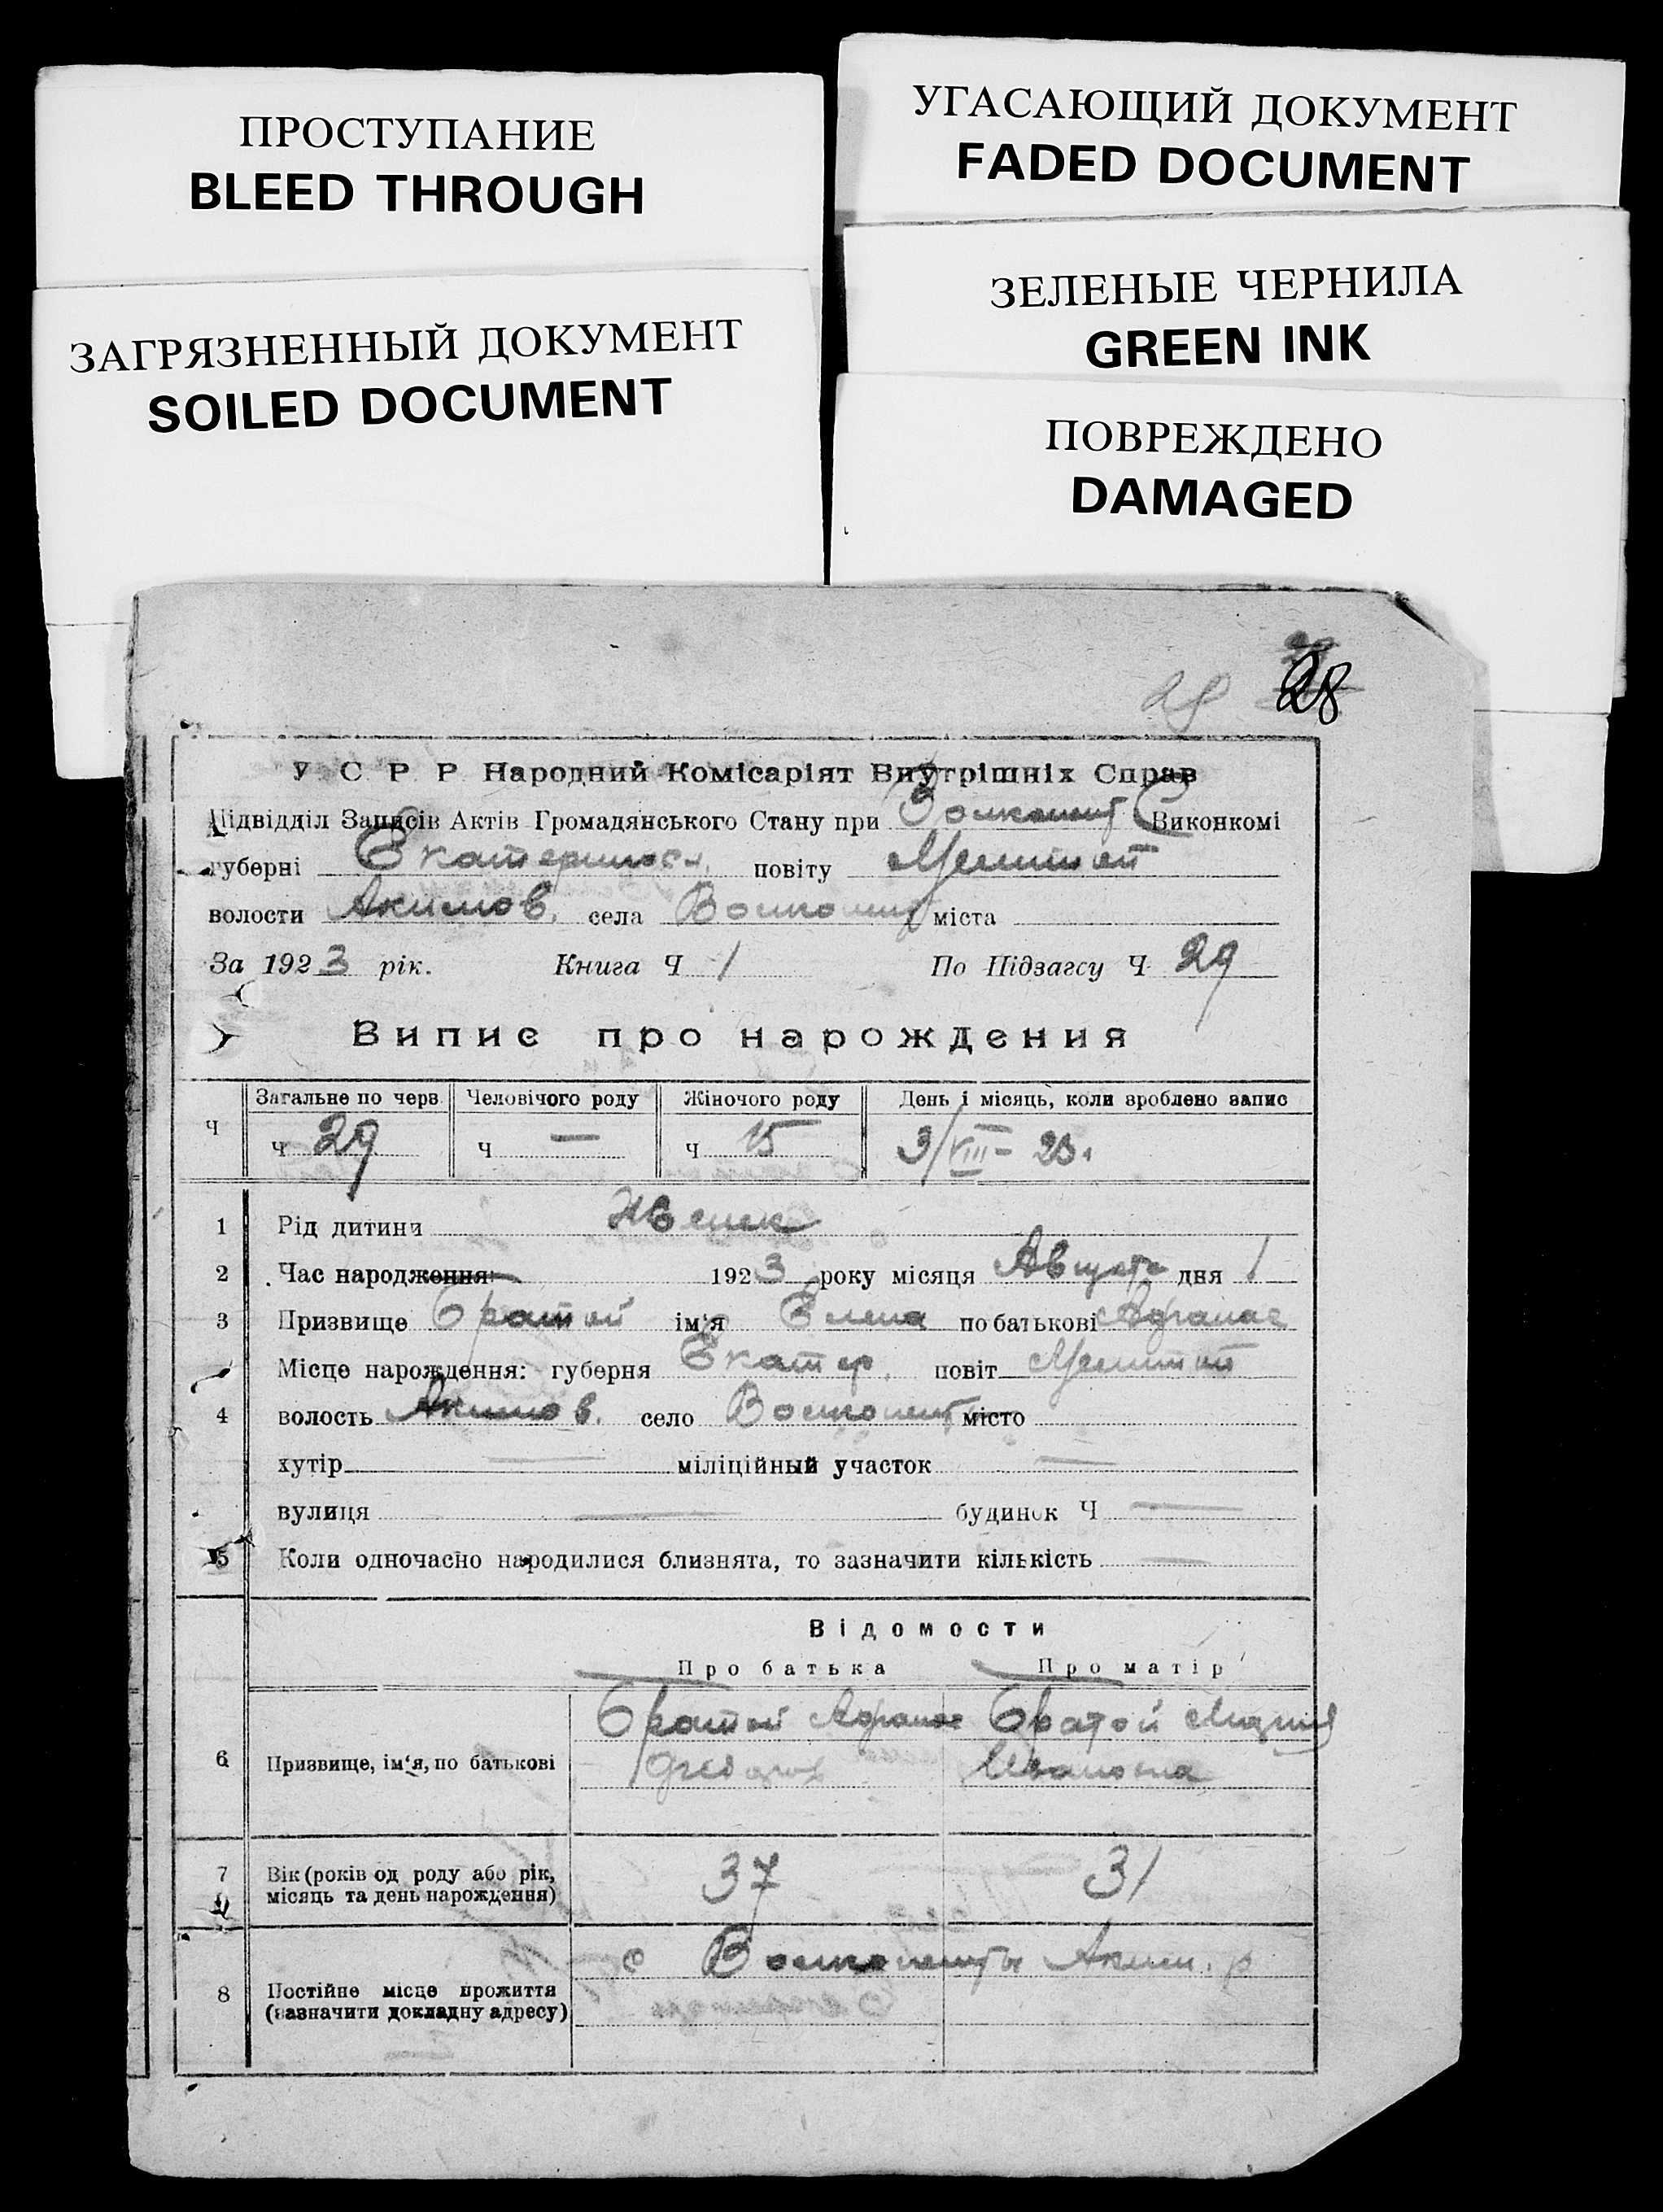 ПРОСТУПАНИЕ
BLEED THROUGH
ЗАГРЯЗНЕННЫЙ ДОКУМЕНТ
SOILED DOCUMENT
УГАСАЮЩИЙ ДОКУМЕНТ
FADED DOCUMENT
ЗЕЛЕНЫЕ ЧЕРНИЛА
GREEN INK
ПОВРЕЖДЕНО
DAMAGED
28 28
У С Р Р Народний Комісаріят Внутрішніх Справ
Підвідділ Записів Актів Громадянського Стану при Виконкомі
губерні Екатериносл. повіту Мелитоп
волости Акимов. села міста
За 1923 рік. Книга Ч 1 По Підзагсу Ч 29
Випис про нарождения
Ч Загальне по черв. Человічого роду Жіночого роду День і місяць, коли зроблено запис
Ч 29 Ч — Ч 15 3/VIII – 23.
1 Рід дитини Женск
2 Час народження 1923 року місяця Августа дня 1
3 Призвище Братой ім'я Елена по батькові Афанас
Місце нарождення: губерня Екатер. повіт Мелитоп
4 волость Акимов. село місто
хутір — міліційный участок —
вулиця — будинок Ч —
5 Коли одночасно народилися близнята, то зазначити кількість —
Відомости
Про батька Про матір
6 Призвище, ім'я, по батькові Братой Афанас Братой Мария
Ивановна
7 Вік (років од роду або рік, місяць та день нарождення) 37 31
8 Постійне місце прожиття (зазначити докладну адресу) с Аким. р